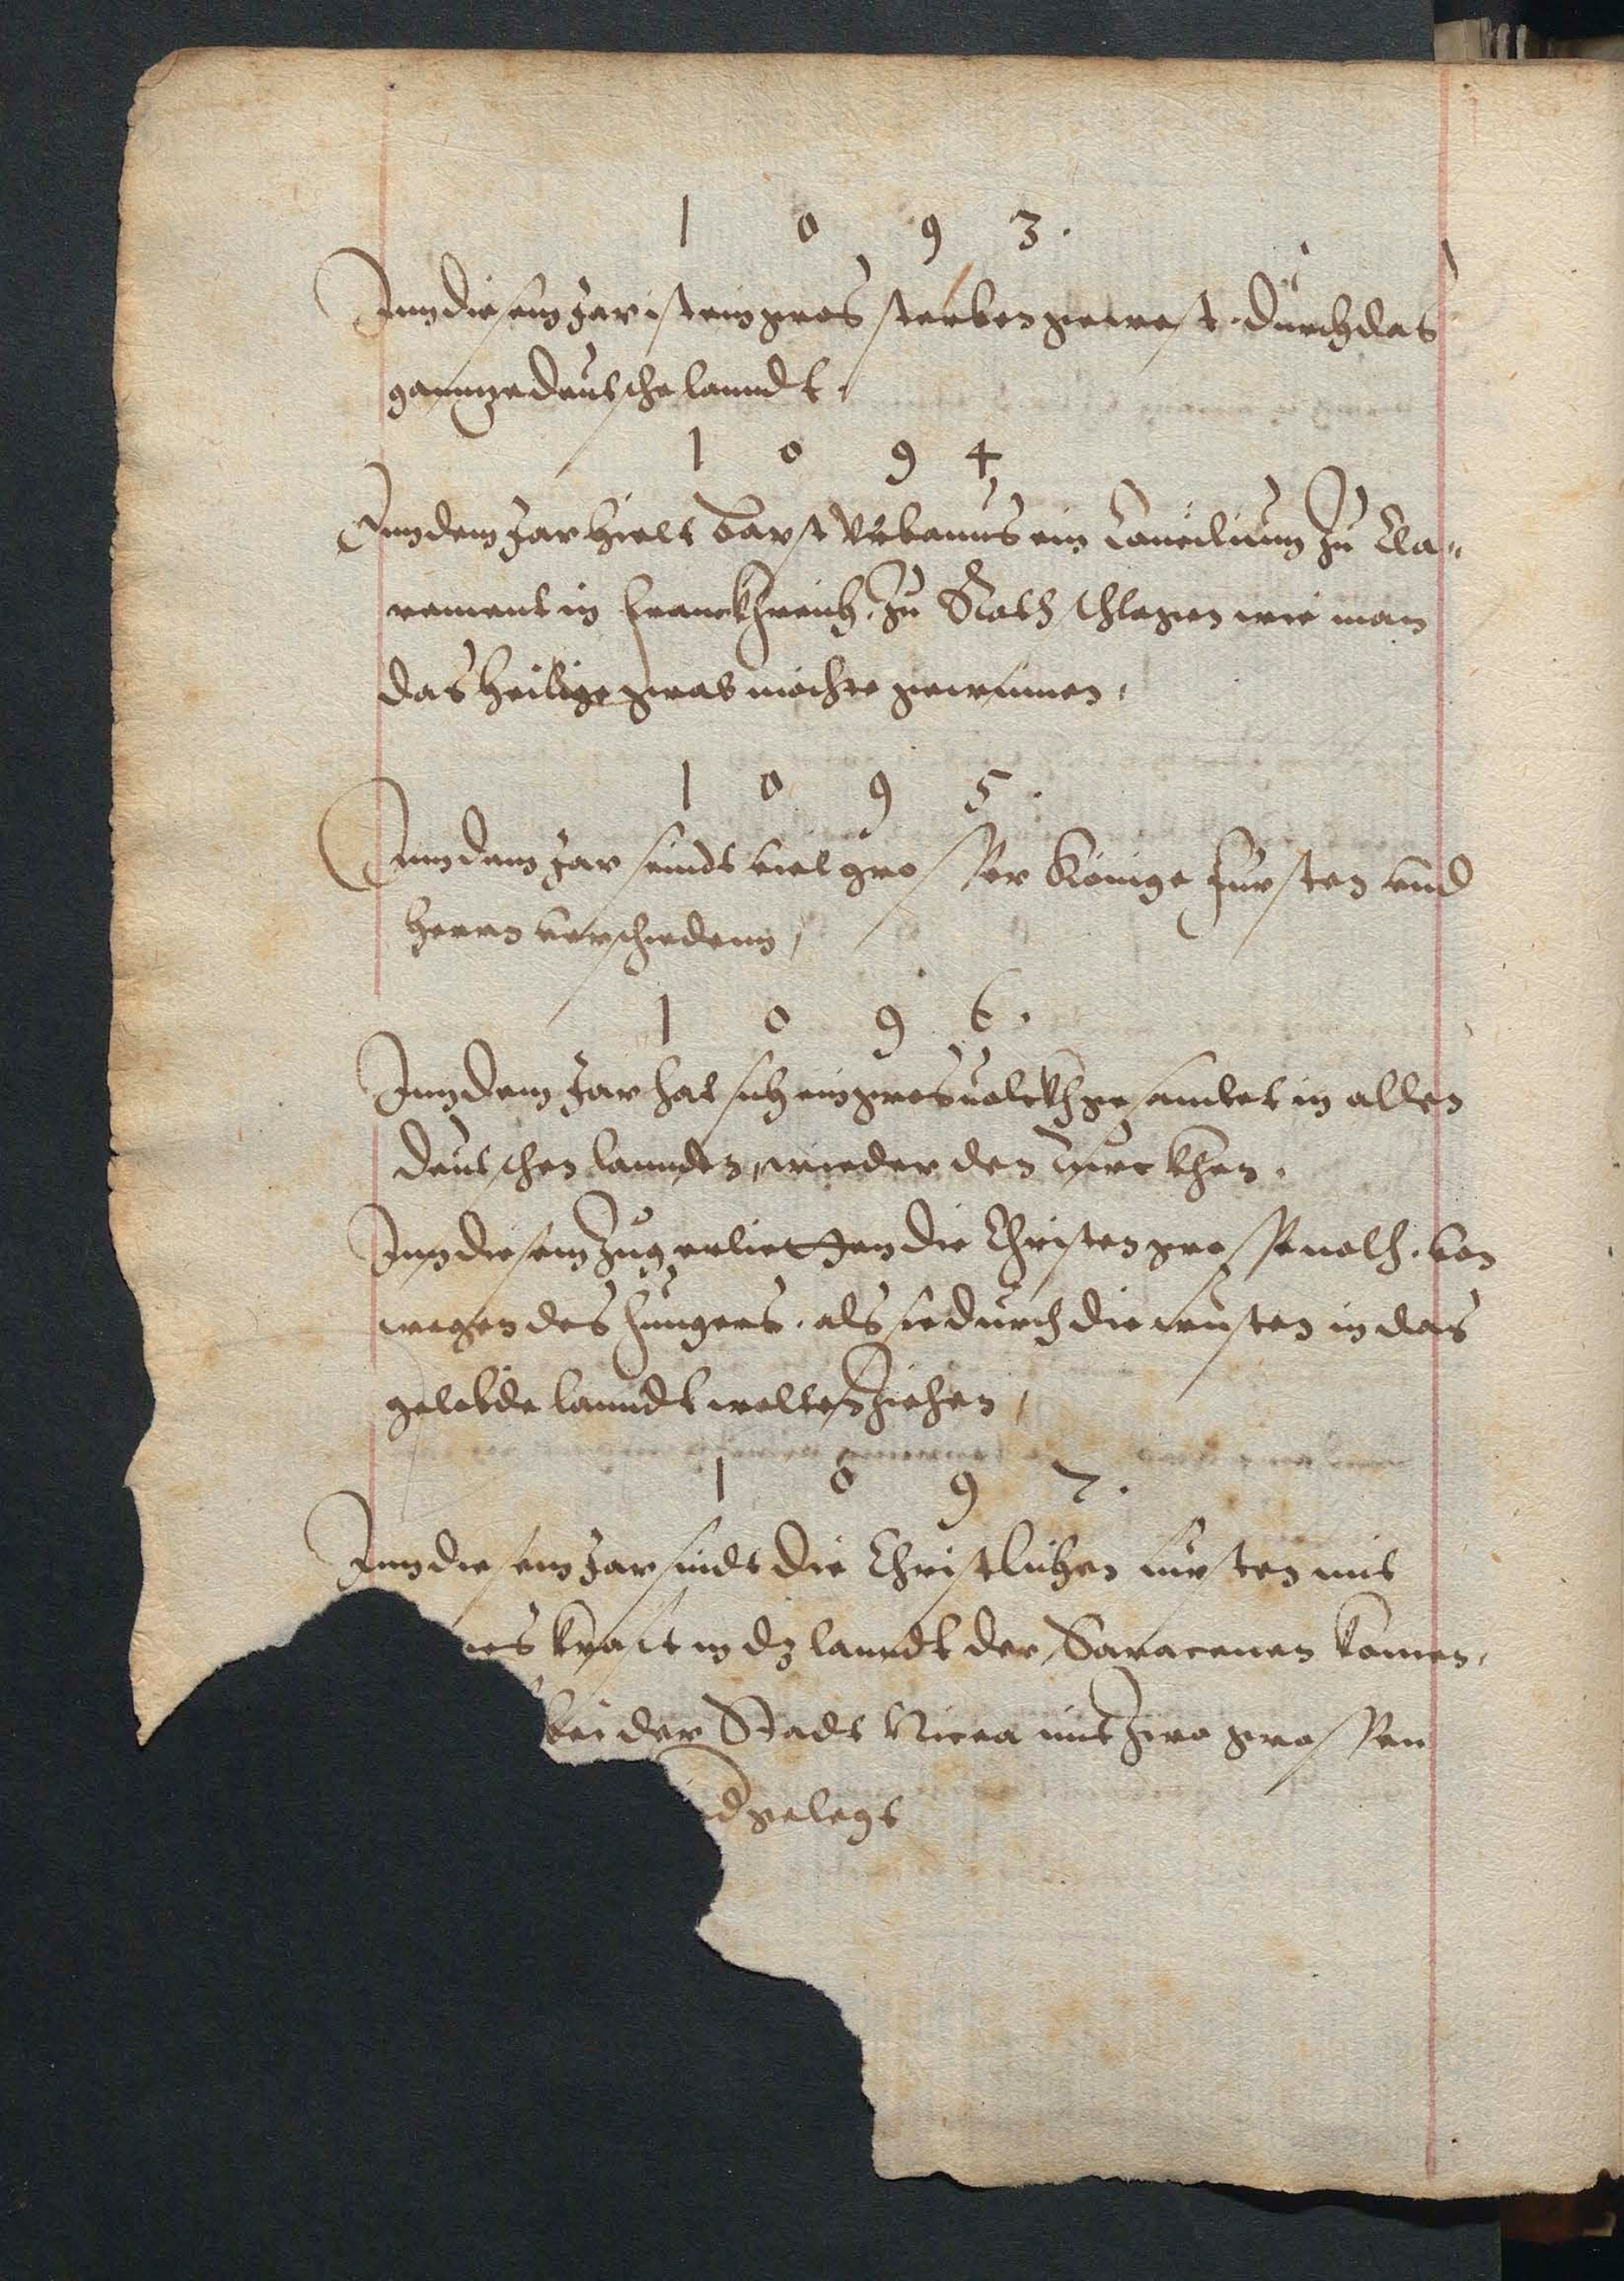 1 0 9 3.
Inn diesem Jar ist ein gros sterben gewest. Durch das
gantze deutsche lanndt.
1 0 9 4
Inn dem Jar hielt Bapst Vrbanus ein Concilium zu Cla=
rement in Franckhreich, zu Rath schlagen wie man
das heilige grab mochte gewinnen,
1 0 9 5.
Inn dem Jar seindt viel grosser Könige Fursten vnd
herrn verschiedenn,
1 0 9 6.
Inn dem Jar hat sich ein gros volckh gesamlet in allen
deutschen lannden, wieder den Turckhen.
Inn diesem Zug erlietten die Christen grosse noth. von
wegen des hungers. als sie durch die wusten in das
gelobde lanndt wolten ziehen,
1 0 9 7.
Inn diesem Jar sindt die Christlichen fursten mit
krafft in dz lanndt der Saracenen komen,
bei der Stadt Nicea mit zwo grossen
gelegt